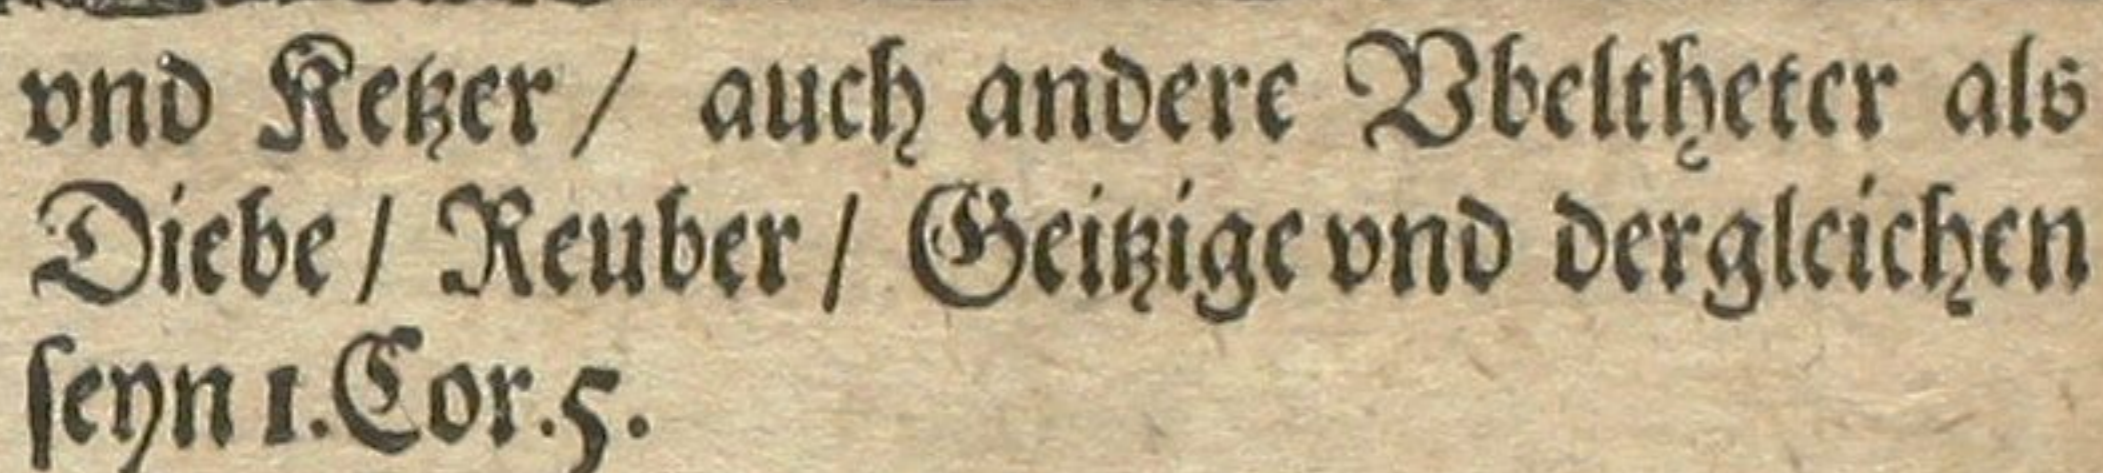 vnd Ketzer / auch andere Vbeltheter als
Diebe / Reuber / Geitzige vnd dergleichen
ſeyn 1. Cor. 5.